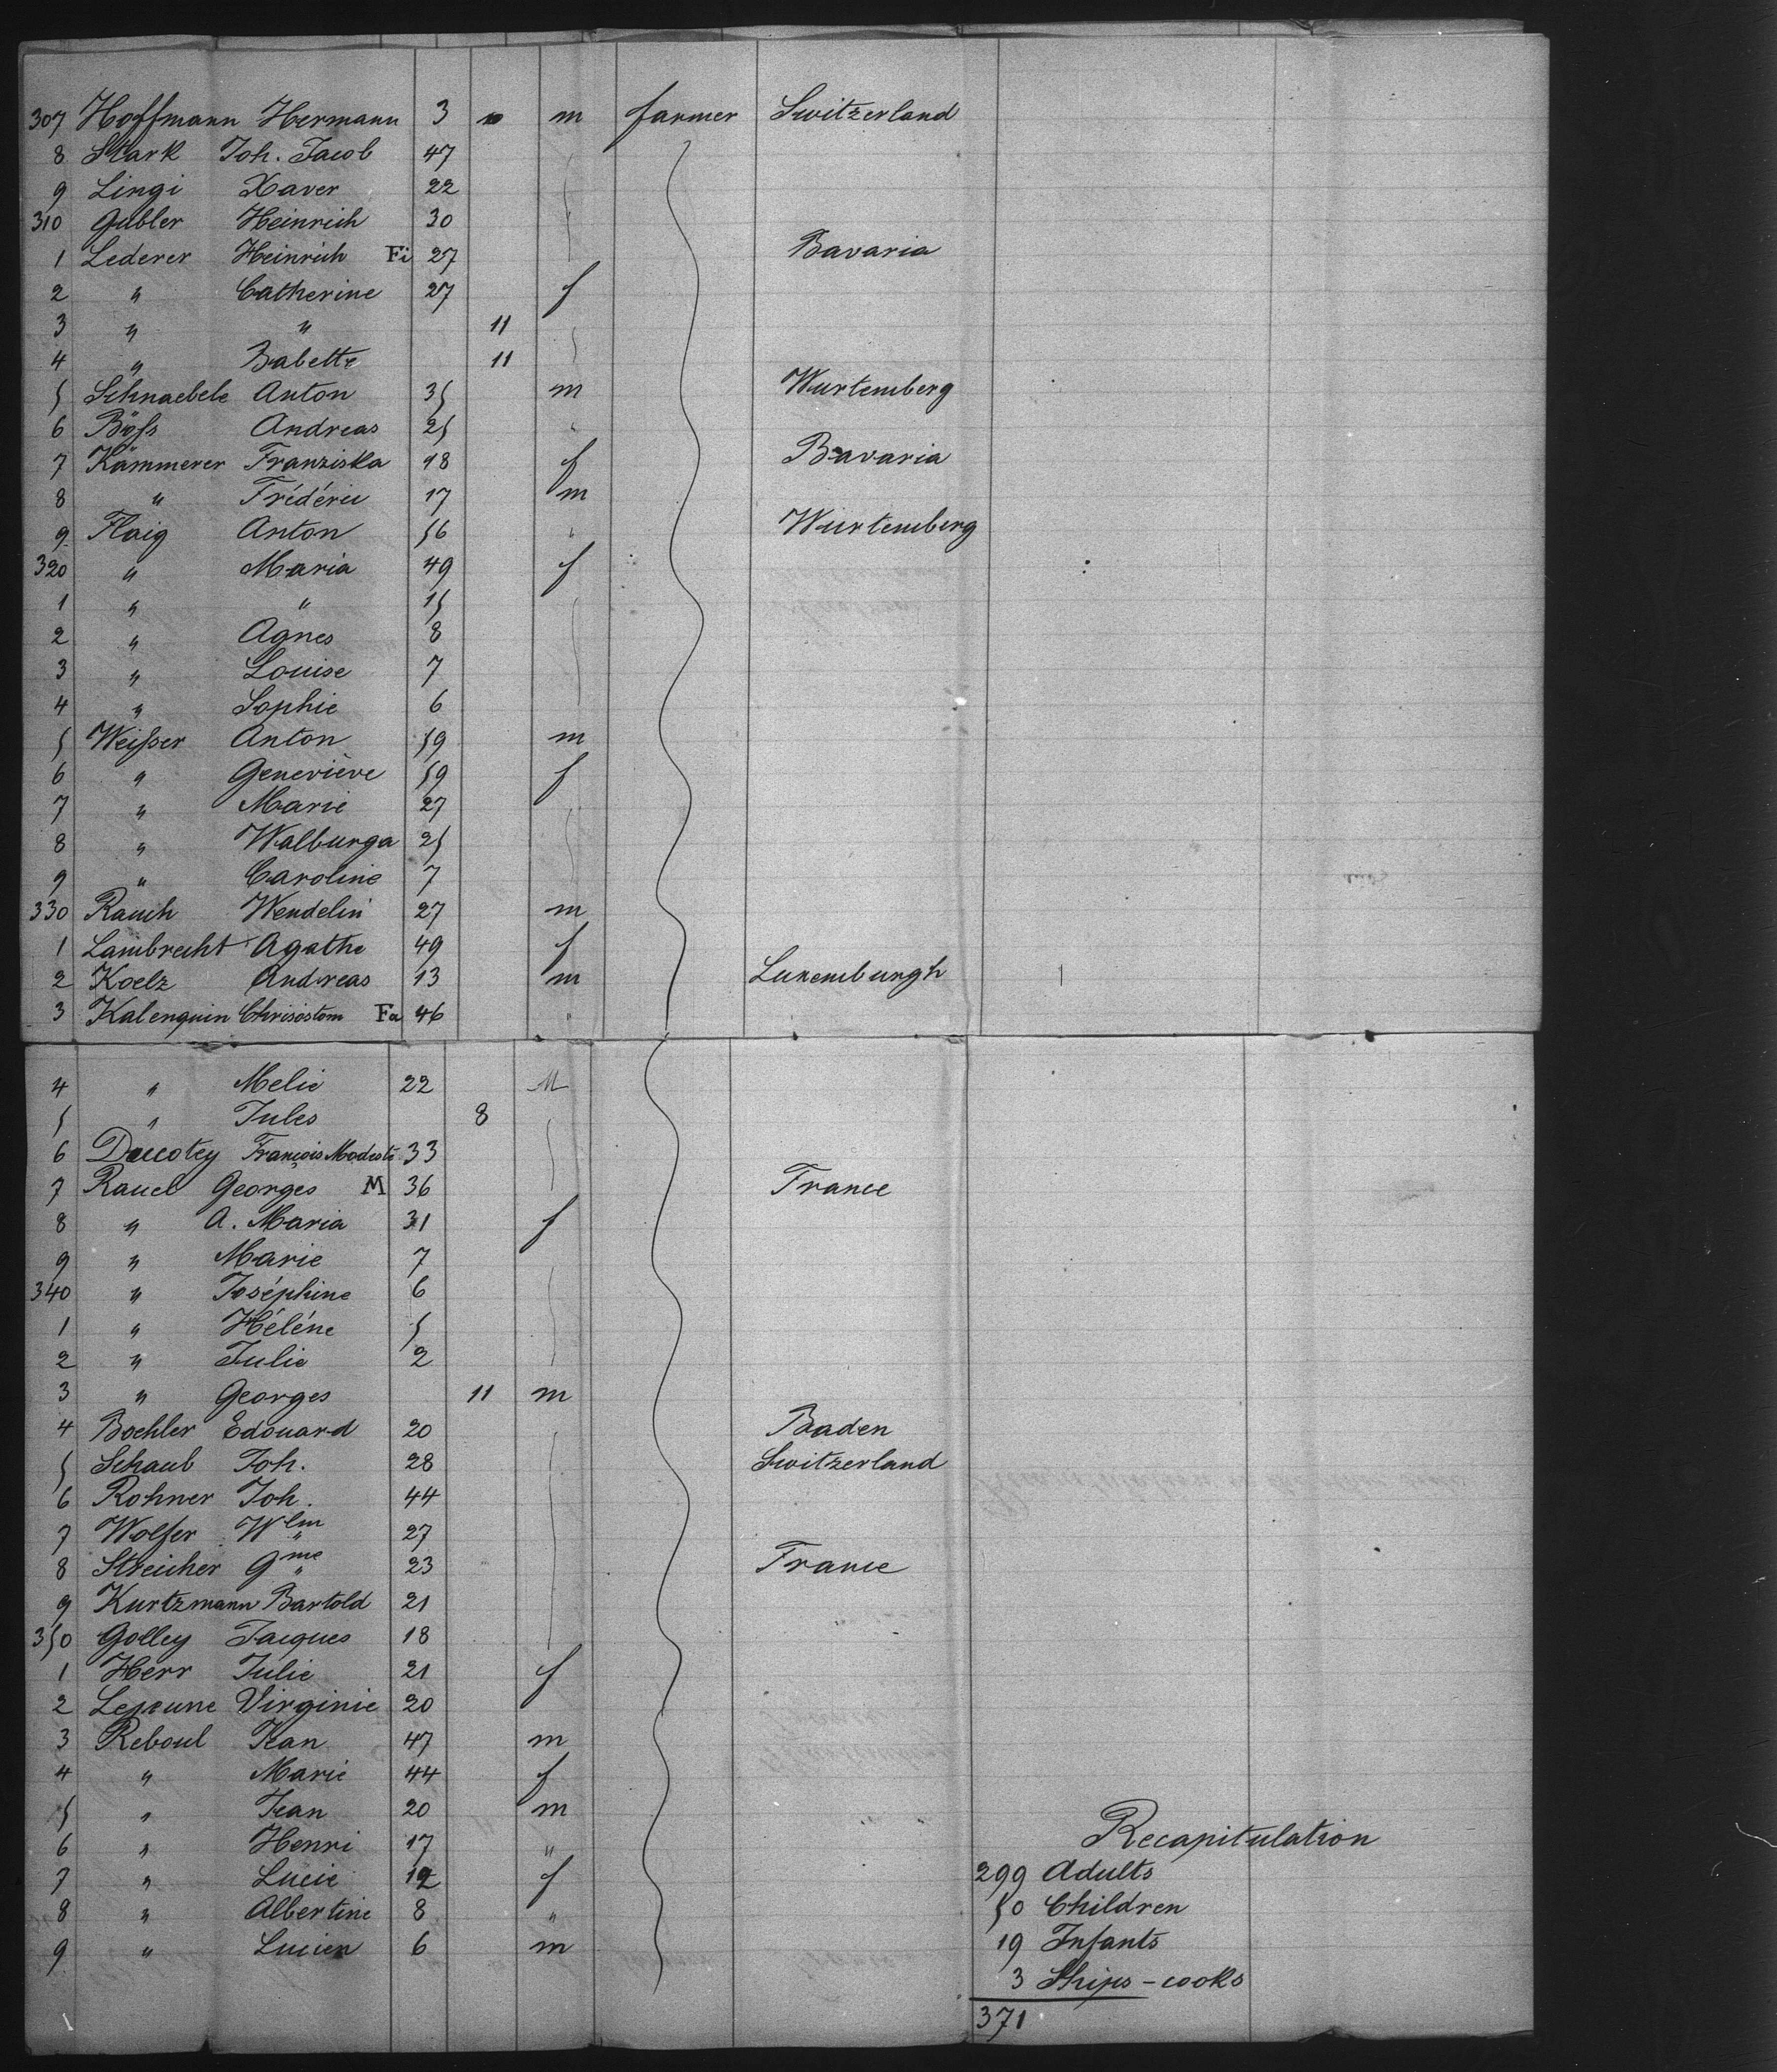 307 Hoffmann Hermann 3 m farmer Switzerland
8 Stark Joh. Jacob 47
9 Lingi Xaver 22
310 Gubler Heinrich 30
1 Lederer Heinrich Fi 27 Bavaria
2 " Catherine 27 f
3 " " 11
4 " Babette 11
5 Schnaebele Anton 35 m Wurtemberg
6 Böfs Andreas 25 "
7 Kämmerer Franziska 18 f Bavaria
8 " Frédéric 17 m
9 Flaig Anton 56 " Wurtemberg
320 " Maria 49 f
1 " " 15
2 " Agnes 8
3 " Louise 7
4 " Sophie 6
5 Weifser Anton 59 m
6 " Geneviève 59 f
7 " Marie 27
8 " Walburga 25
9 " Caroline 7
330 Rauch Wendelin 27 m
1 Lambrecht Agathe 49 f
2 Koelz Andreas 13 m Luxemburgh
3 Kalenquin Chrisostom Fa 46 "
4 " Melie 22 M
5 " Jules 8
6 Duccotey François Modeste 33
7 Rauel Georges M 36 France
8 " A. Maria 31 f
9 " Marie 7
340 " Joséphine 6
1 " Héléne 5
2 " Julie 2
3 " Georges 11 m
4 Boehler Edouard 20 Baden
5 Schaub Joh. 28 Switzerland
6 Rohner Joh. 44
7 Wolfer Wlm 27
8 Streicher Gme 23 France
9 Kurtzmann Bartold 21
350 Golley Jacques 18
1 Herr Julie 21 f
2 Lejeune Virginie 20
3 Reboul Jean 47 m
4 " Marie 44 f
5 " Jean 20 m
6 " Henri 17 "
7 " Lucie 12 f
8 " Albertine 8 "
9 " Lucien 6 m
Recapitulation
299 Adults
50 Children
19 Infants
3 Ships-cooks
371